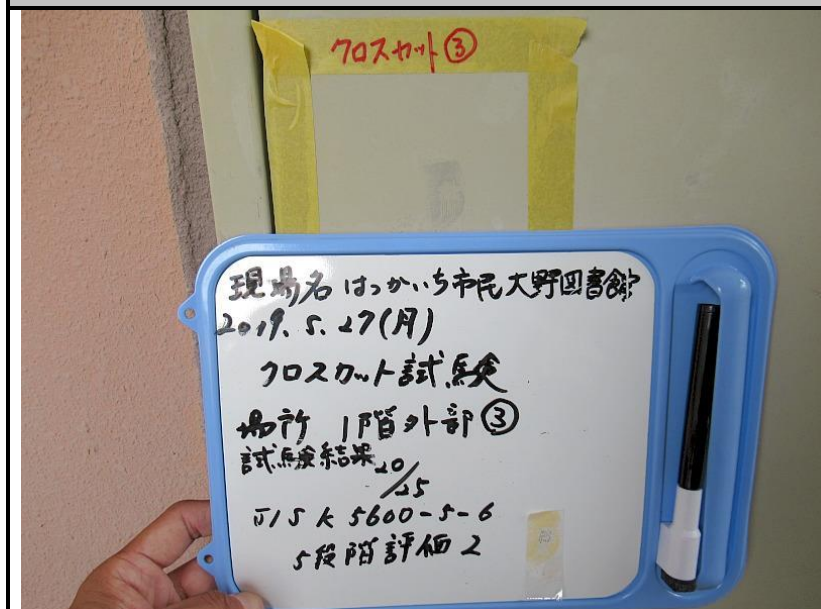 クロスカット③
現場名 はつかいち市民大野図書館
2019. 5. 27(月)
クロスカット試験
場所 1階外部③
試験結果 20/25
JIS K 5600-5-6
5段階評価 2